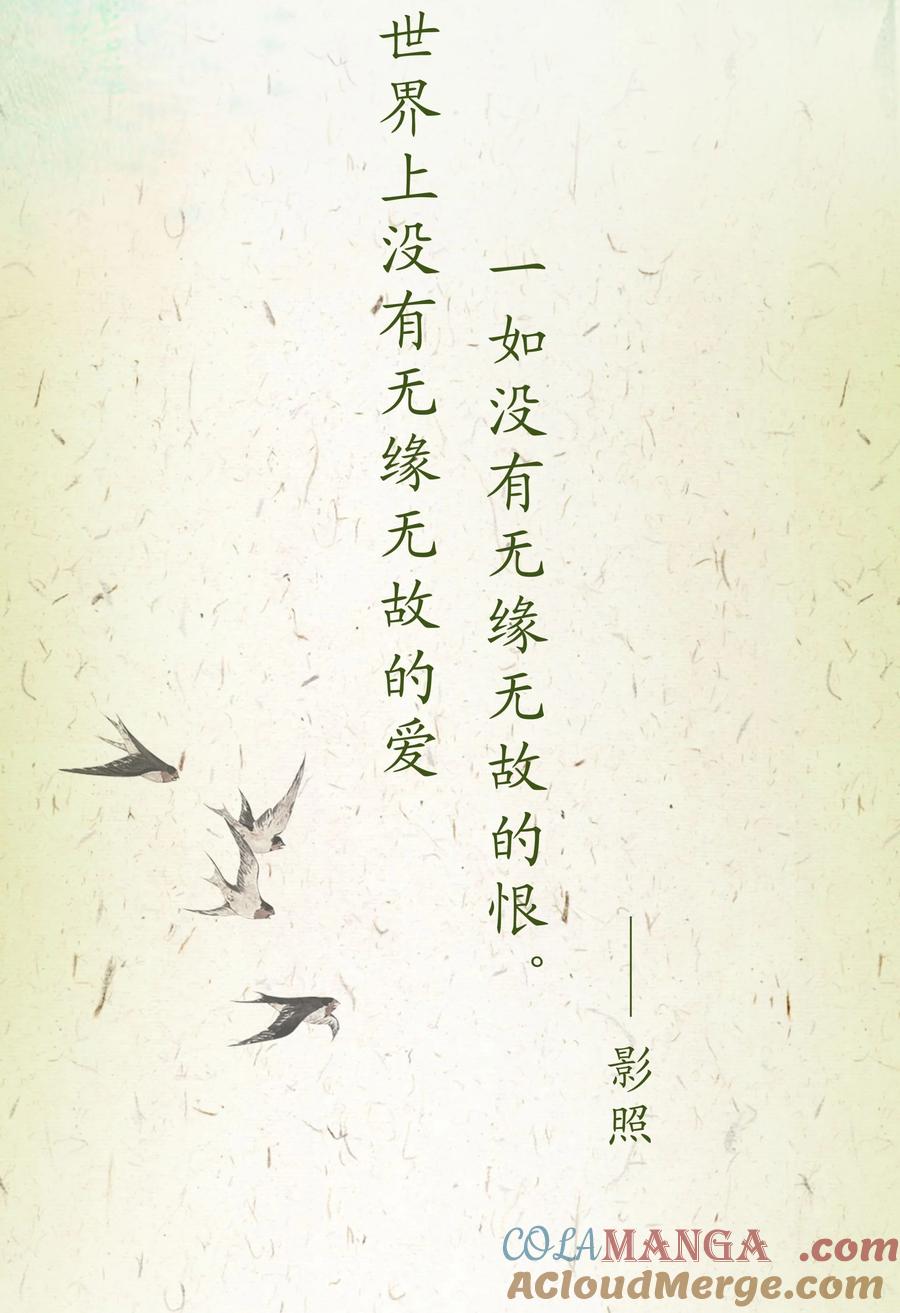 世界上没有无缘无故的爱
一如没有无缘无故的恨。
——影照
COLAMANGA .com
ACloudMerge.com